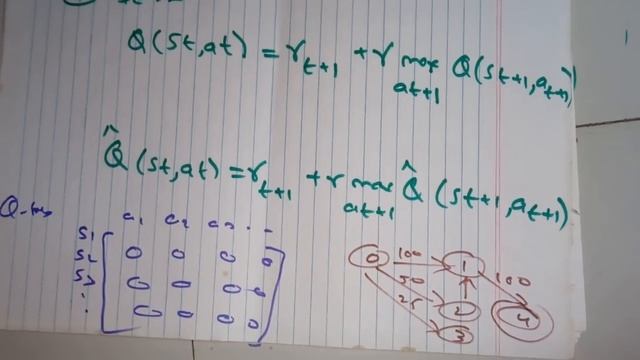 Q(St,at) = r t+1 + r max at+1 Q(St+1,at+1)
Q̂(St,at) = r t+1 + r max at+1 Q̂(St+1,at+1)
a1 a2 a3 . . -
S1
S2 0 0 0 0
S3 0 0 0 0
: 0 0 0 0
0 100 1 100
50
25 2 4
3